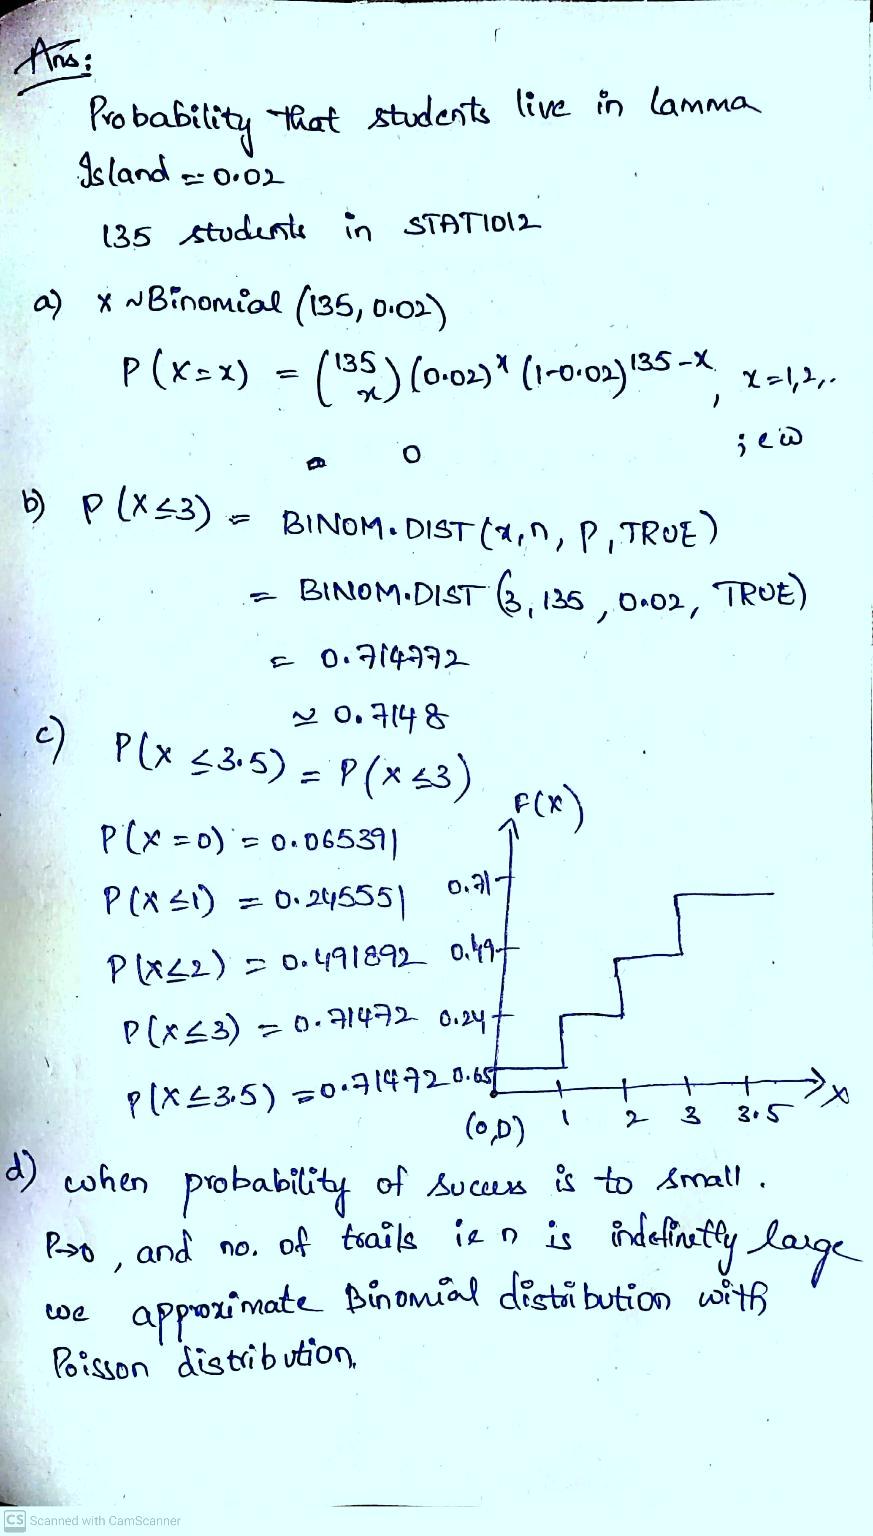 Ans:
Probability that students live in Lamma
Island = 0.02
135 students in STAT1012
a) X ~ Binomial (135, 0.02)
P(X=x) = (135 x) (0.02)^x (1-0.02)^135-x, x=1,2,..
0 ; ew
b) P(X≤3) = BINOM.DIST(x,n, P, TRUE)
= BINOM.DIST (3, 135, 0.02, TRUE)
= 0.714772
≈ 0.7148
c) P(X ≤3.5) = P(X ≤3)
F(X)
P(X=0) = 0.065391
P(X≤1) = 0.245551 0.71
P(X≤2) = 0.491892 0.49
P(X≤3) = 0.71472 0.24
P(X≤3.5) =0.71472 0.65
X
(0,0) 1 2 3 3.5
d) when probability of success is to small.
P→0, and no. of trails ie n is indefinetly large
we approximate Binomial distribution with
Poisson distribution.
CS Scanned with CamScanner